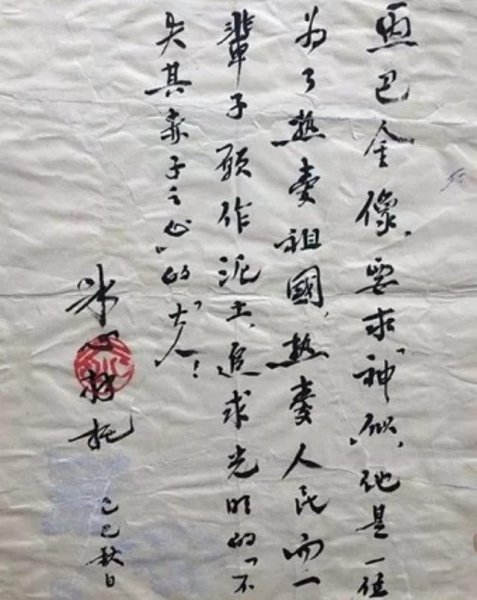 画巴金像，要求“神似”，他是一位
为了热爱祖國，热爱人民而一
辈子願作泥土，追求光明的“不
失其赤子之心”的“大人”！
冰心拜托
己巳秋日